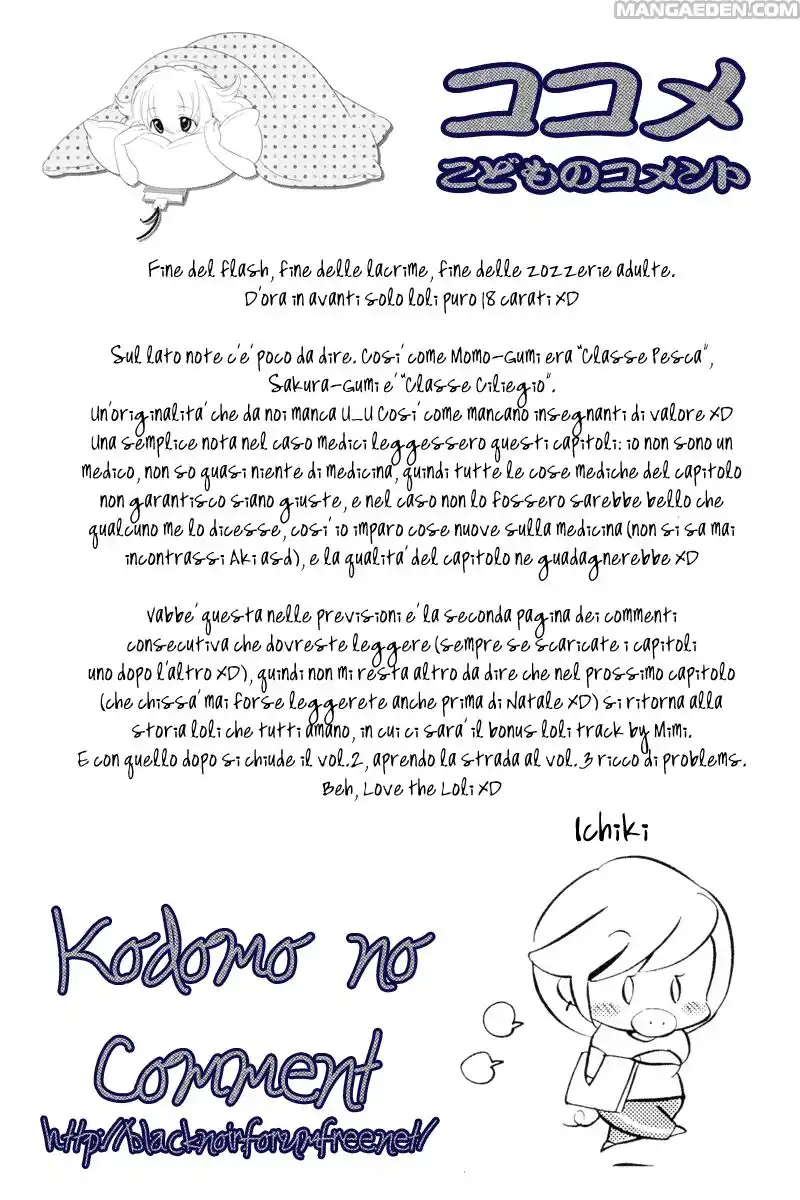 MANGAEDEN.COM
ココメ
こどものコメント
Fine del flash, fine delle lacrime, fine delle zozzerie adulte.
D'ora in avanti solo loli puro 18 carati XD
Sul lato note c'e' poco da dire. Cosi' come Momo-Gumi era "Classe Pesca",
Sakura-Gumi e' "Classe Ciliegio".
Un'originalita' che da noi manca U_U Cosi' come mancano insegnanti di valore XD
Una semplice nota nel caso medici leggessero questi capitoli: io non sono un
medico, non so quasi niente di medicina, quindi tutte le cose mediche del capitolo
non garantisco siano giuste, e nel caso non lo fossero sarebbe bello che
qualcuno me lo dicesse, cosi' io imparo cose nuove sulla medicina (non si sa mai
incontrassi Aki asd), e la qualita' del capitolo ne guadagnerebbe XD
Vabbe' questa nelle previsioni e' la seconda pagina dei commenti
consecutiva che dovreste leggere (sempre se scaricate i capitoli
uno dopo l'altro XD), quindi non mi resta altro da dire che nel prossimo capitolo
(che chissa' mai forse leggerete anche prima di Natale XD) si ritorna alla
storia loli che tutti amano, in cui ci sara' il bonus loli track by Mimi.
E con quello dopo si chiude il vol.2, aprendo la strada al vol.3 ricco di problems.
Beh, Love the Loli XD
Ichiki
Kodomo no
Comment
http://blacknoir.forumfree.net/